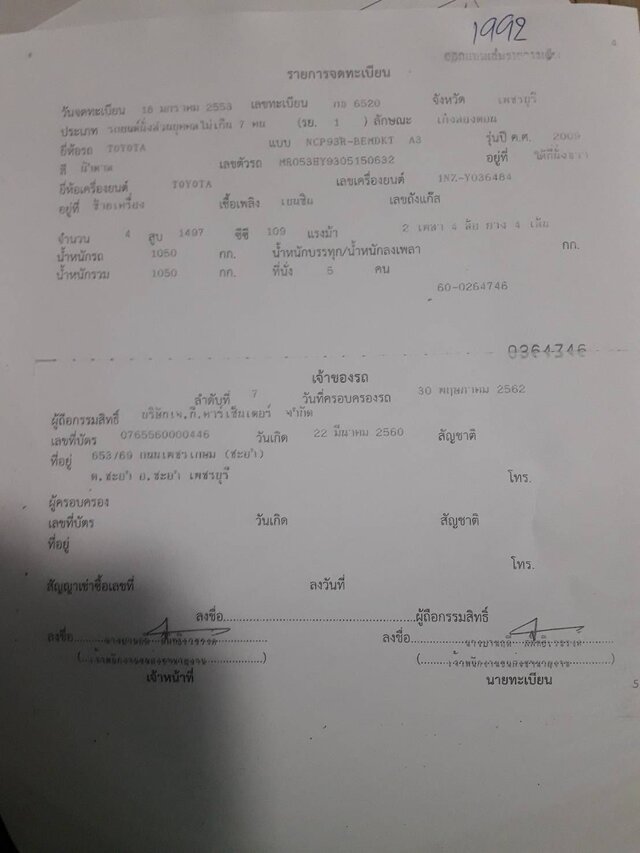 1992
รายการจดทะเบียน
วันจดทะเบียน 18 มกราคม 2553 เลขทะเบียน กธ 6520 จังหวัด เพชรบุรี
ประเภท รถยนต์นั่งส่วนบุคคลไม่เกิน 7 คน (รย. 1 ) ลักษณะ เก๋งสองตอน
ยี่ห้อรถ TOYOTA แบบ NCP93R-BEMDKT A3 รุ่นปี ค.ศ. 2009
สี น้ำตาล เลขตัวรถ MR053HY9305150632 อยู่ที่
ยี่ห้อเครื่องยนต์ TOYOTA เลขเครื่องยนต์ 1NZ-Y036484
อยู่ที่ ซ้ายเครื่อง เชื้อเพลิง เบนซิน เลขถังแก๊ส
จำนวน 4 สูบ 1497 ซีซี 109 แรงม้า 2 เพลา 4 ล้อ ยาง 4 เส้น
น้ำหนักรถ 1050 กก. น้ำหนักบรรทุก/น้ำหนักลงเพลา กก.
น้ำหนักรวม 1050 กก. ที่นั่ง 5 คน
60-0264746
0364346
เจ้าของรถ
ลำดับที่ 7 วันที่ครอบครองรถ 30 พฤษภาคม 2562
ผู้ถือกรรมสิทธิ์ บริษัทเจ.ที.คาร์เซ็นเตอร์ จำกัด
เลขที่บัตร 0765560000446 วันเกิด 22 มีนาคม 2560 สัญชาติ
ที่อยู่ 653/69 ถนนเพชรเกษม (ชะอำ)
ต.ชะอำ อ.ชะอำ เพชรบุรี โทร.
ผู้ครอบครอง
เลขที่บัตร วันเกิด สัญชาติ
ที่อยู่
โทร.
สัญญาเช่าซื้อเลขที่ ลงวันที่
ลงชื่อ ผู้ถือกรรมสิทธิ์
ลงชื่อ ลงชื่อ
(เจ้าพนักงานขนส่งชำนาญงาน) (เจ้าพนักงานขนส่งชำนาญงาน)
เจ้าหน้าที่ นายทะเบียน